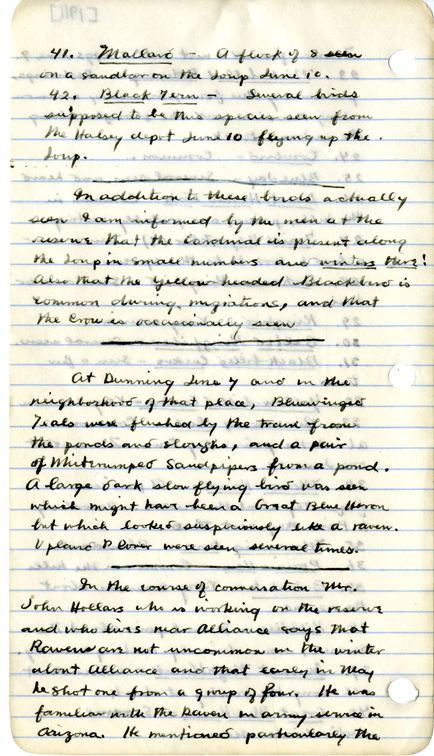 [1911]
41. Mallard - A flock of 8 seen
on a sandbar on the Loup June 10.
42. Black Tern - Several birds
supposed to be this species seen from
the Halsey depot June 10 flying up the
Loup.
In addition to these birds actually
seen I am informed by the men at the
reserve that the Cardinal is present along
the Loup in small numbers and winters there!
Also that the Yellow headed Blackbird is
common during migrations, and that
the Crow is occasionally seen
At Dunning June 7 and in the
neighborhood of that place, Bluewinged
Teals were flushed by the train from
the ponds and sloughs, and a pair
of Whiterumped Sandpipers from a pond.
A large dark slow flying bird was seen
which might have been a Great Blue Heron
but which looked suspiciously like a raven.
Upland Plover were seen several times.
In the course of conversation Mr.
John Hollars who is working on the reserve
and who lives near Alliance says that
Ravens are not uncommon in the winter
about Alliance and that early in May
he shot one from a group of four. He was
familiar with the Raven in army service in
Arizona. He mentioned particularly the